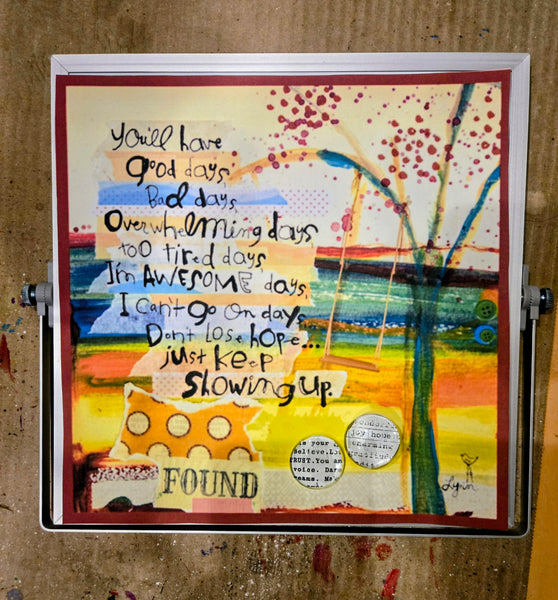 You'll have
good days,
Bad days,
Overwhelming days,
too tired days,
I'm AWESOME days,
I Can't go On days,
Don't Lose hope...
just keep
Showing up.
FOUND
is your
Believe.
TRUST.You
voice.
joy hope
charming
gratitud
Lynn